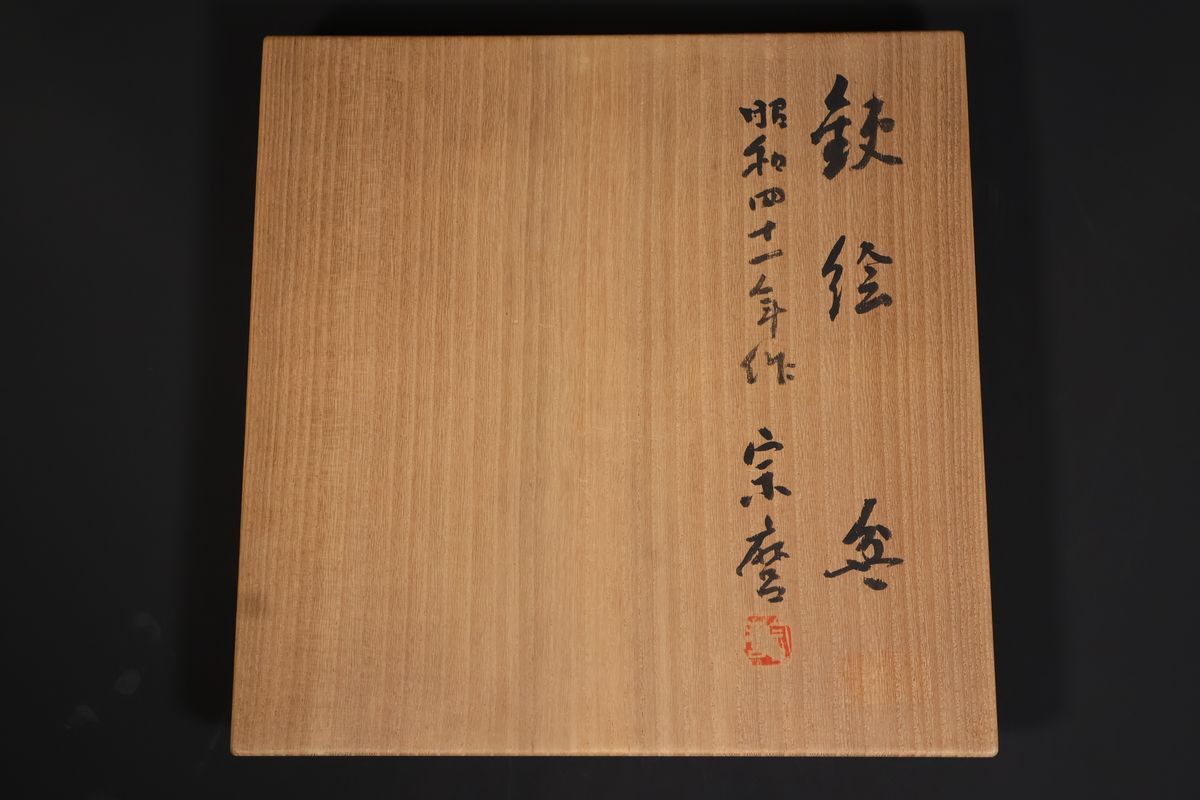 鉄絵 盆
昭和四十一年作 宗麿